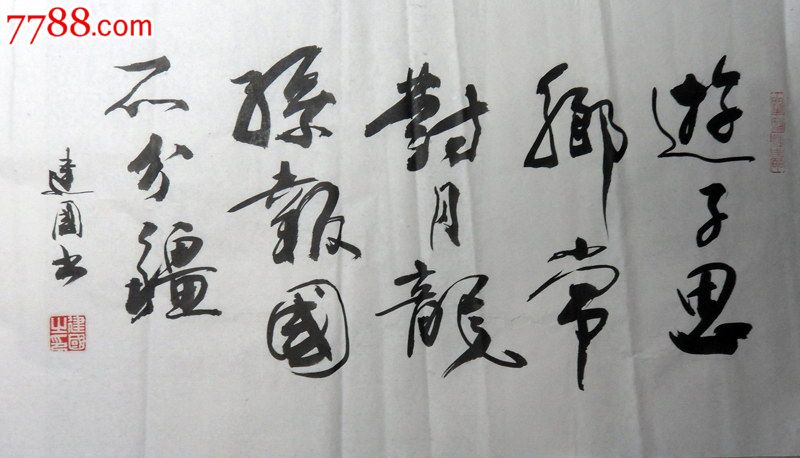 7788.com
遊子思
鄉常
對月龍
孫報國
不分疆
建國书
建國之印